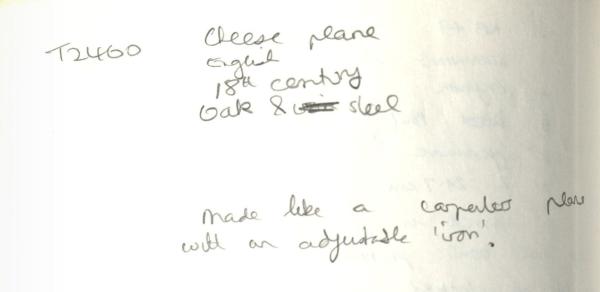 T2460 Cheese plane
English
18th century
Oak & steel
Made like a carpenters plane
with an adjustable 'iron'.